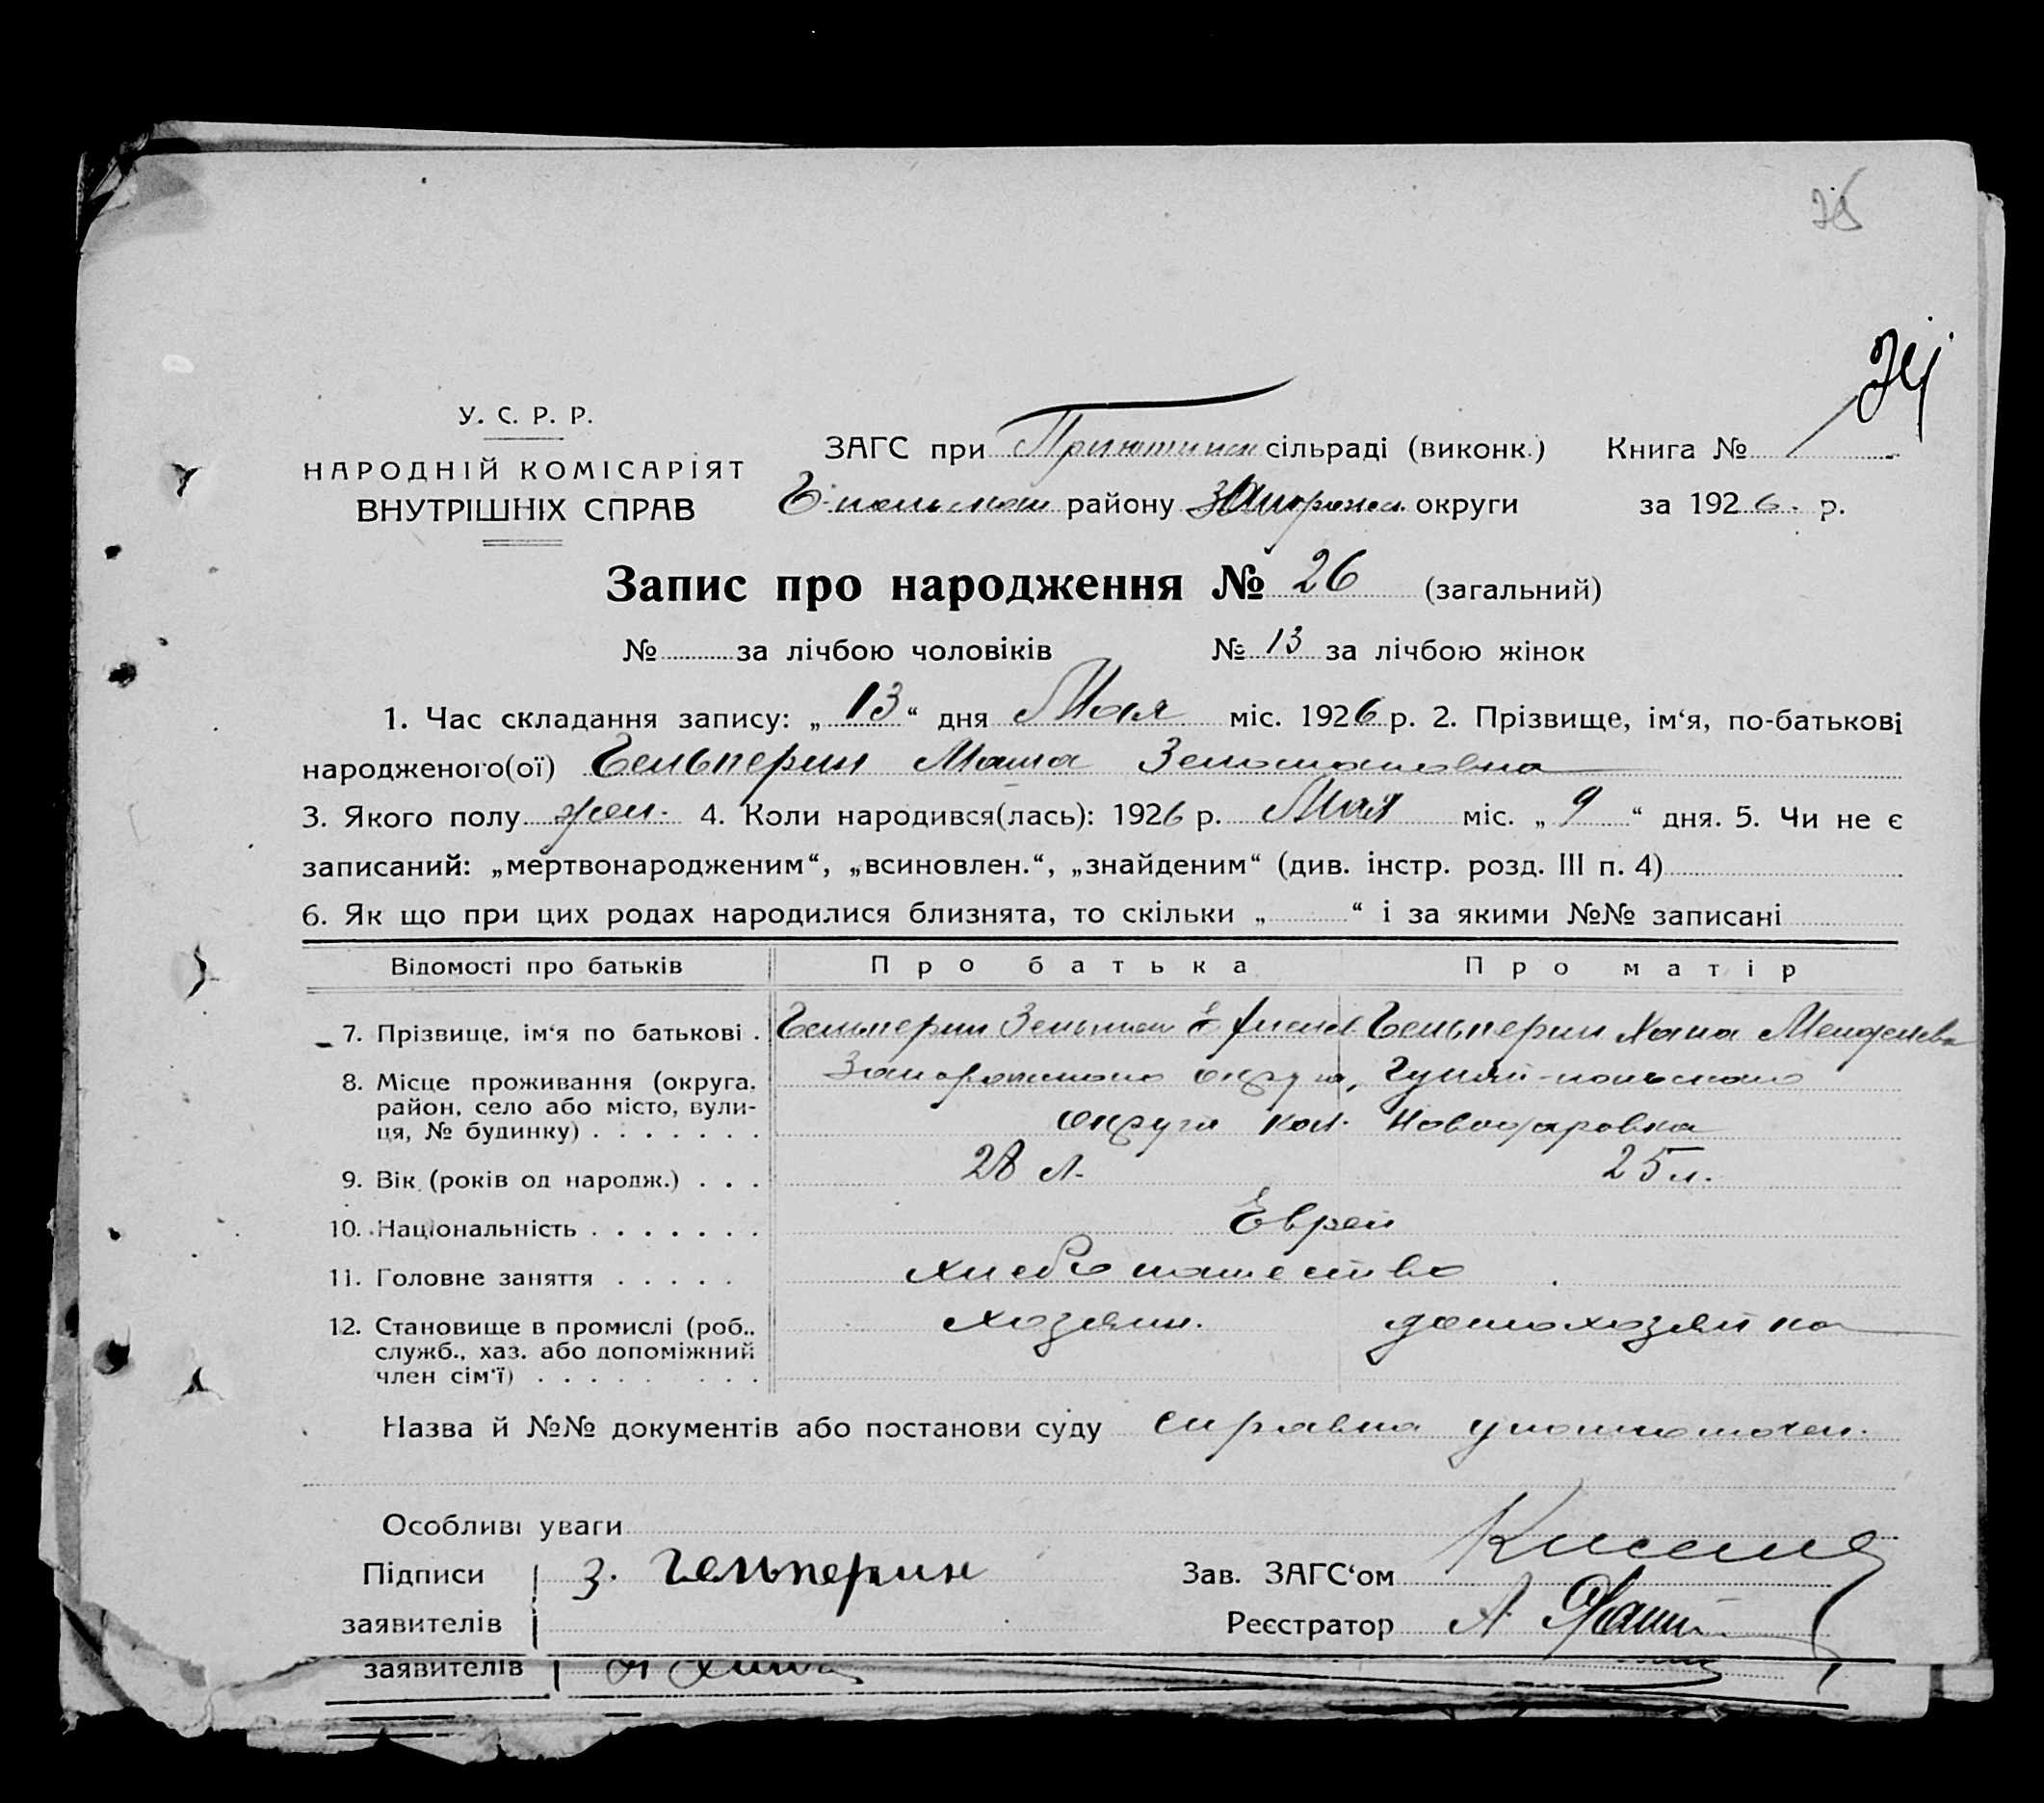 У. С. Р. Р.
НАРОДНІЙ КОМІСАРІЯТ
ВНУТРІШНІХ СПРАВ
ЗАГС при сільраді (виконк.) Книга №
району округи за 1926. р.
Запис про народження № 26 (загальний)
№ за лічбою чоловіків № 13 за лічбою жінок
1. Час складання запису: „13“ дня Мая міс. 1926 р. 2. Прізвище, ім‘я, по-батькові
народженого(ої) Гельперин Маша Зельмановна
3. Якого полу жен. 4. Коли народився(лась): 1926 р. Мая міс. „9“ дня. 5. Чи не є
записаний: „мертвонародженим“, „всиновлен.“, „знайденим“ (див. інстр. розд. III п. 4)
6. Як що при цих родах народилися близнята, то скільки „ “ і за якими №№ записані
Відомості про батьків Про батька Про матір
7. Прізвище, ім‘я по батькові . Гельперин Зельман Гельперин Хана
8. Місце проживання (округа, Запорожского округа, Гуляй-польского
район, село або місто, вули-
ця, № будинку) . . . . . . . округа кол. Новодаровка
9. Вік (років од народж.) . . . 28 л. 25 л.
10. Національність . . . . . . . Еврей
11. Головне заняття . . . . . хлебопашество
12. Становище в промислі (роб., хозяин. домохозяйка
служб., хаз. або допоміжний
член сім‘ї) . . . . . . . .
Назва й №№ документів або постанови суду справка уполномочен.
Особливі уваги
Підписи З. Гельперин Зав. ЗАГС‘ом
заявителів Реєстратор А.
заявителів